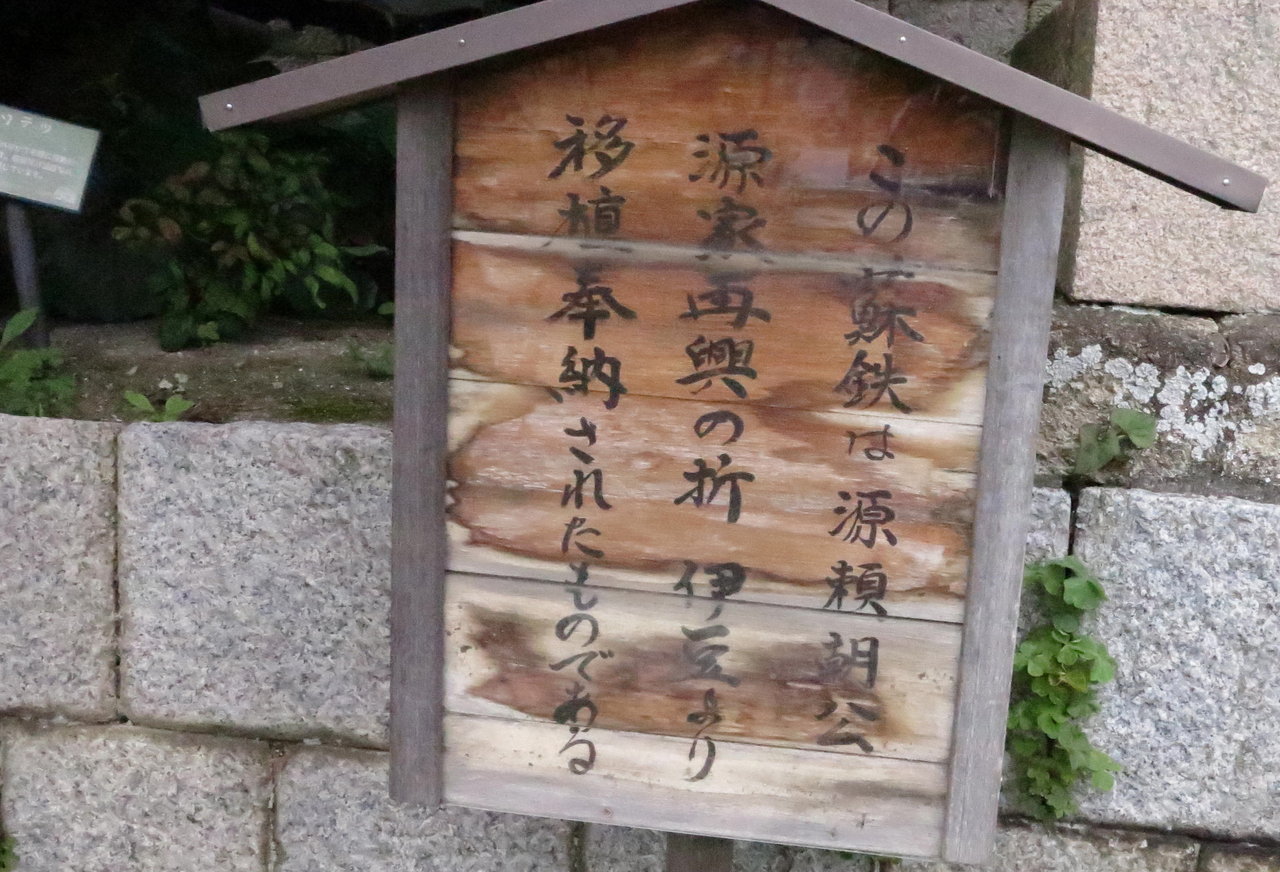 この蘇鉄は源頼朝公
源家再興の折 伊豆より
移植奉納されたものである
ソテツ